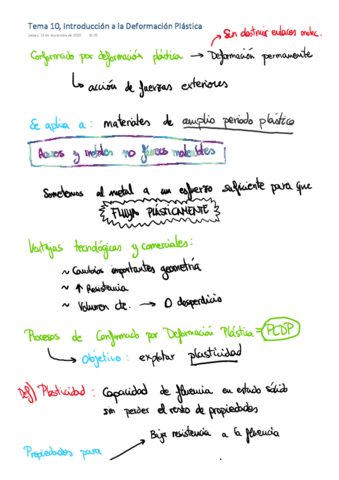 Tema 10, Introducción a la Deformación Plástica
jueves, 12 de noviembre de 2020
Sin destruir enlaces molec.
Conformado por deformación plástica → Deformación permanente
↳ acción de fuerzas exteriores
Se aplica a: materiales de amplio periodo plástico
Aceros y metales no férreos maleables
Sometemos al metal a un esfuerzo suficiente para que
FLUYA PLÁSTICAMENTE
Ventajas tecnológicas y comerciales:
~ Cambios importantes geometría
~ ↑ Resistencia
~ Volumen cte. → 0 desperdicio
Procesos de Conformado por Deformación Plástica = PCDP
↳ Objetivo: explotar plasticidad
Def) Plasticidad: Capacidad de fluencia en estado sólido
sin perder el resto de propiedades
Baja resistencia a la fluencia
Propiedades para